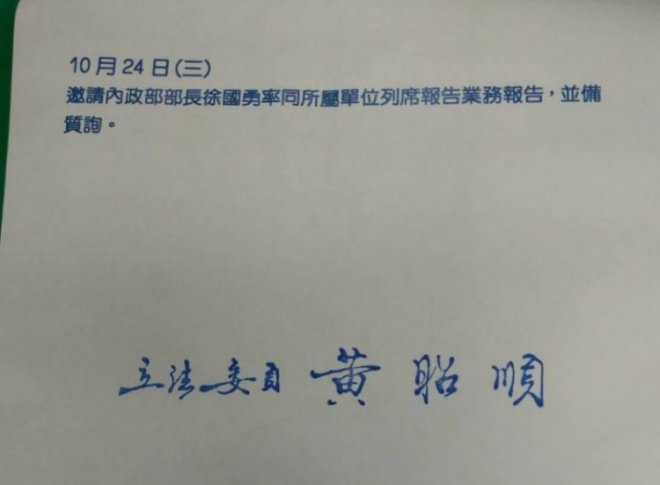 10月24日(三)
邀請內政部部長徐國勇率同所屬單位列席報告業務報告，並備
質詢。
立法委員 黃昭順